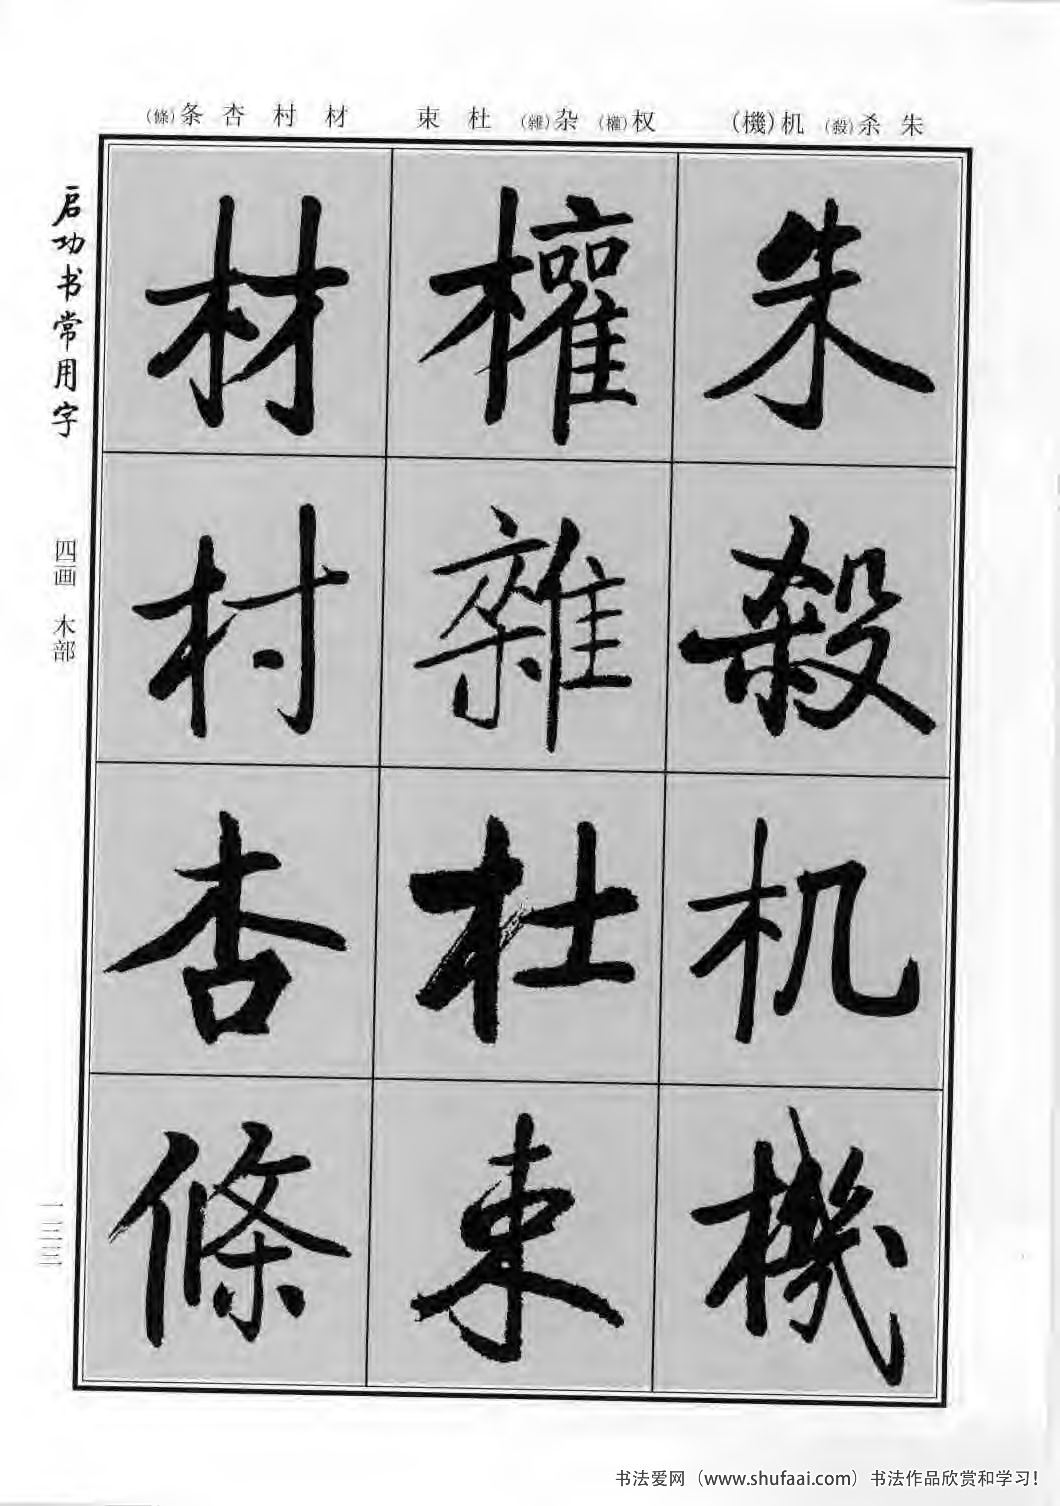 朱 杀(殺) 机(機) 权(權) 杂(雜) 杜 束 材 村 杏 条(條)
朱
殺
机
機
權
雜
杜
束
材
村
杏
條
启功书常用字
四画 木部
一三三
书法爱网（www.shufaai.com）书法作品欣赏和学习！